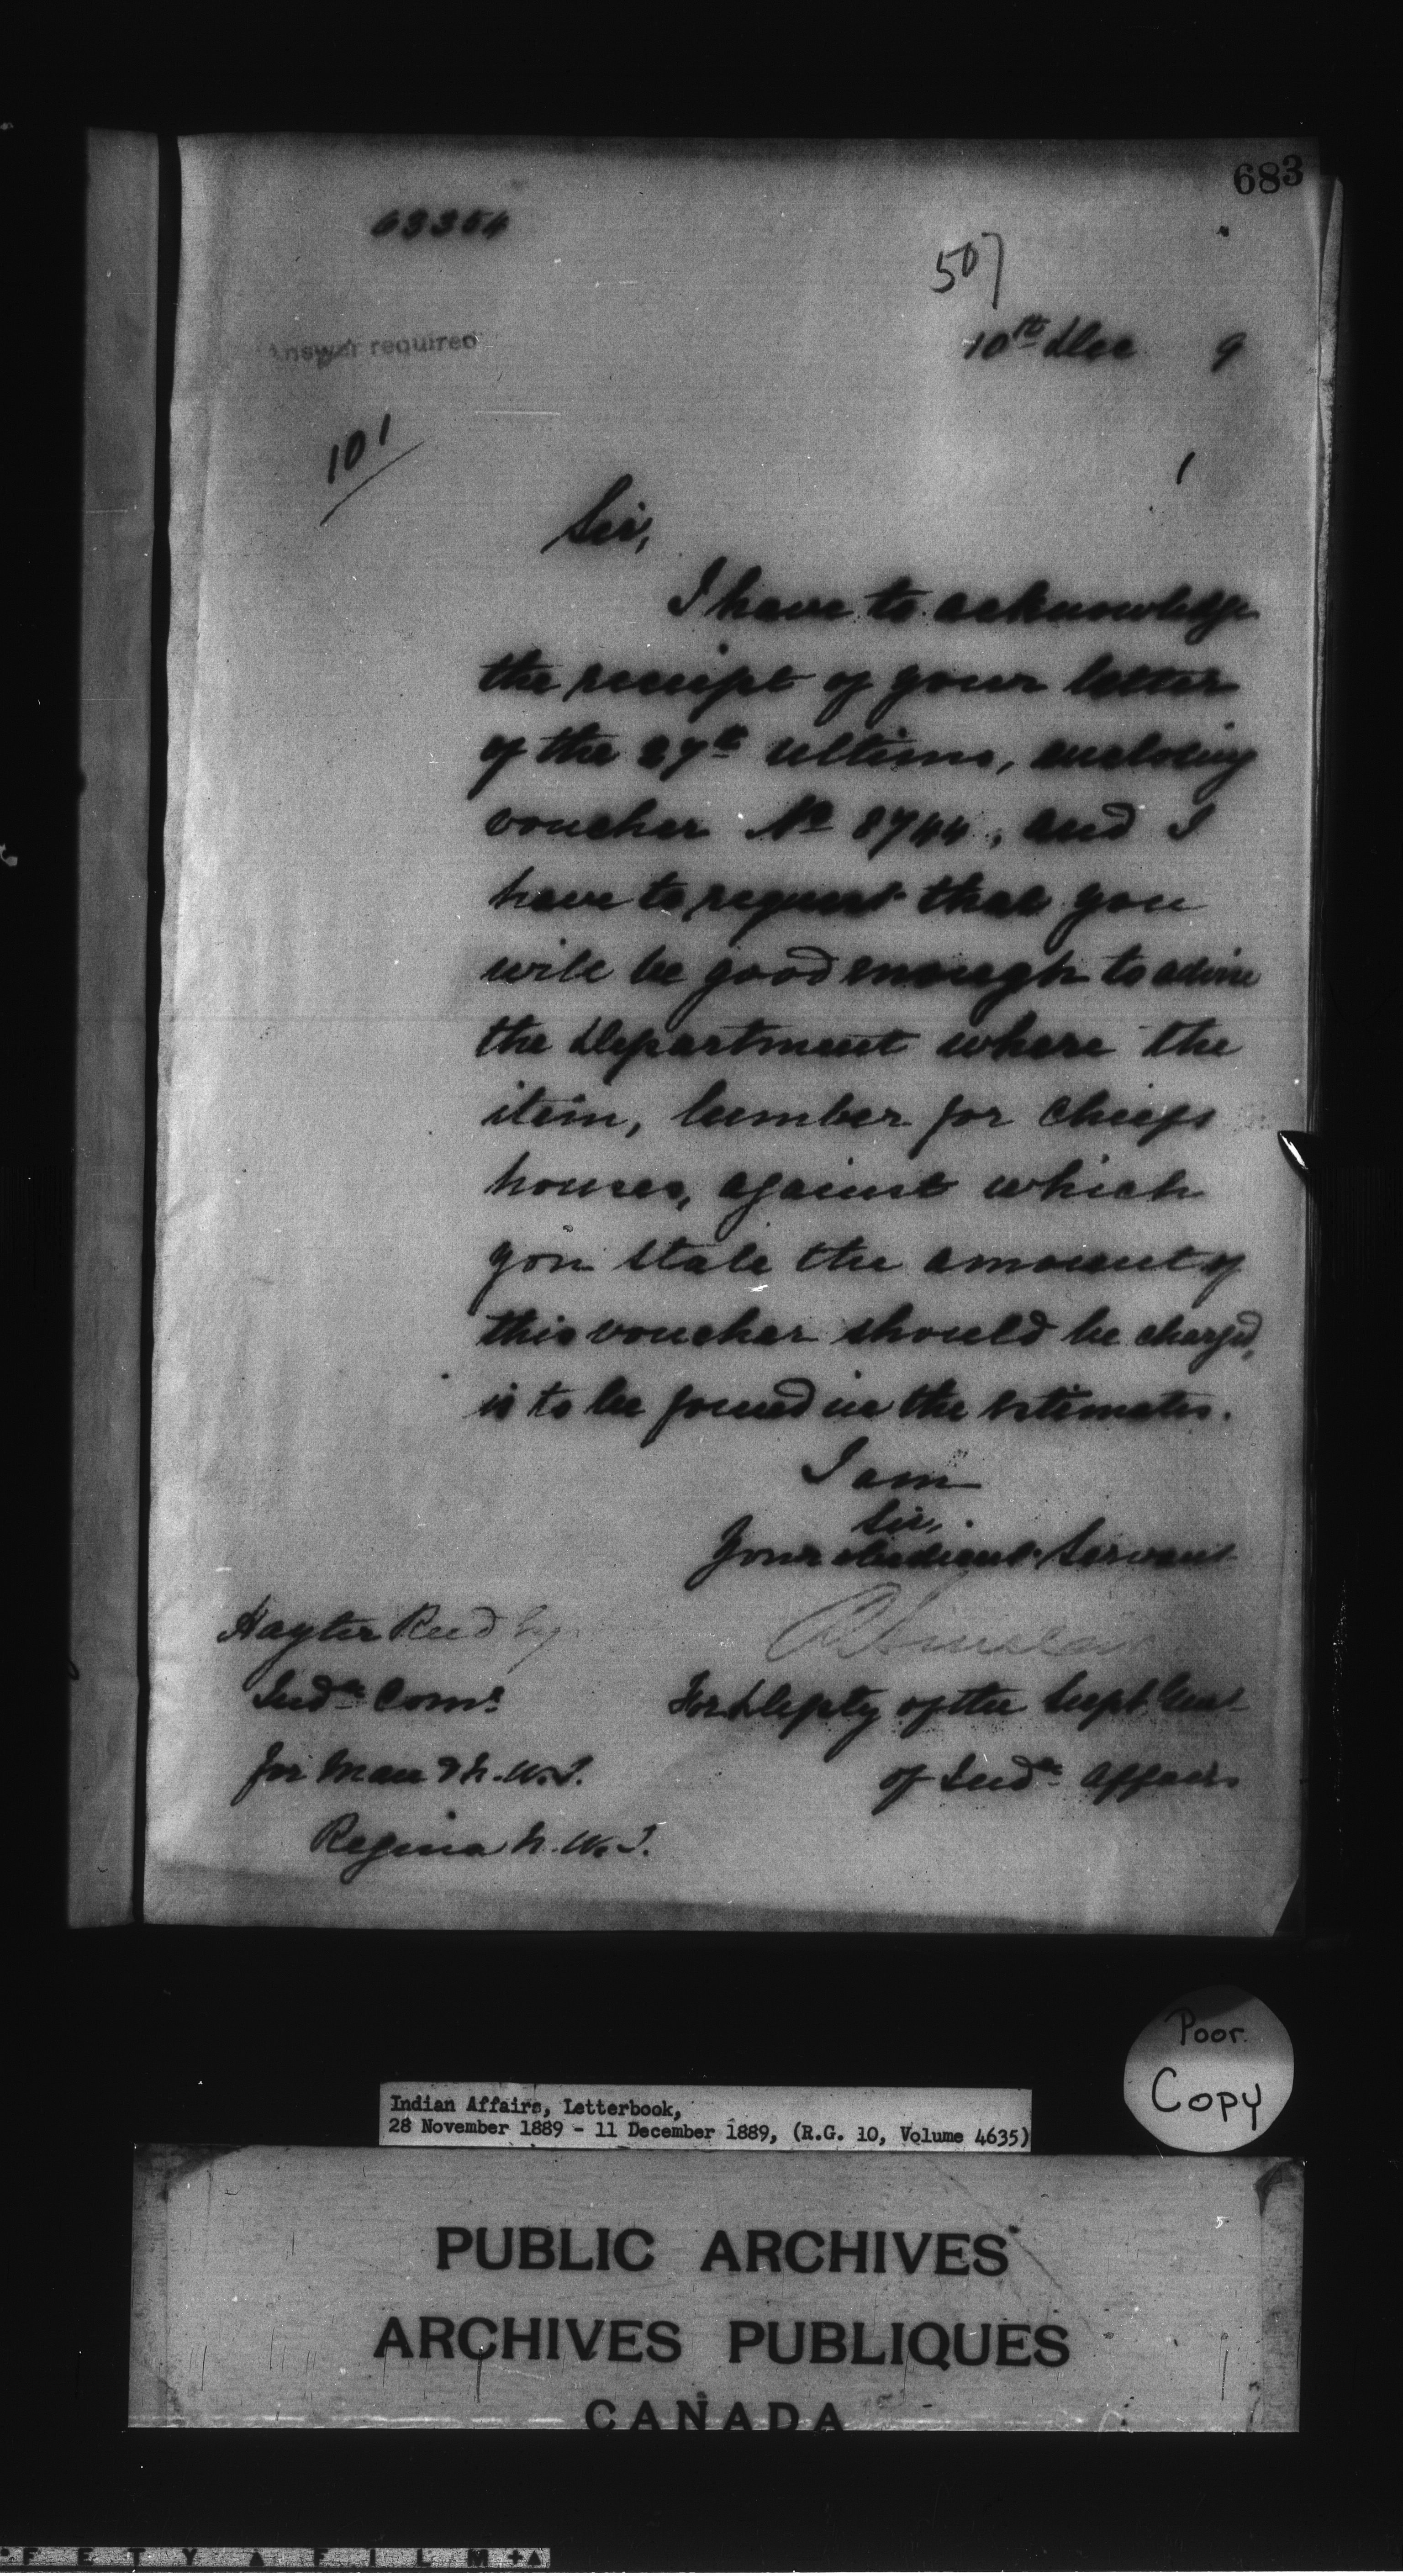 683
63354
507
Answer required
10th Dec 9
101
Sir,
I have to acknowledge
the receipt of your letter
of the 27th ultimo, enclosing
voucher No 8744, and I
have to request that you
will be good enough to advise
the Department where the
item, lumber for Chiefs
houses, against which
you state the amount of
this voucher should be charged,
is to be found in the estimates.
I am
Sir,
Your obedient Servant
Hayter Reed Esq
Indn Comr
For Depty of the Supt Genl
for Man & N.W.T.
of Indn Affairs
Regina N.W.T.
Poor
Copy
Indian Affairs, Letterbook,
28 November 1889 - 11 December 1889, (R.G. 10, Volume 4635)
PUBLIC ARCHIVES
ARCHIVES PUBLIQUES
CANADA
F E T Y A F I L M